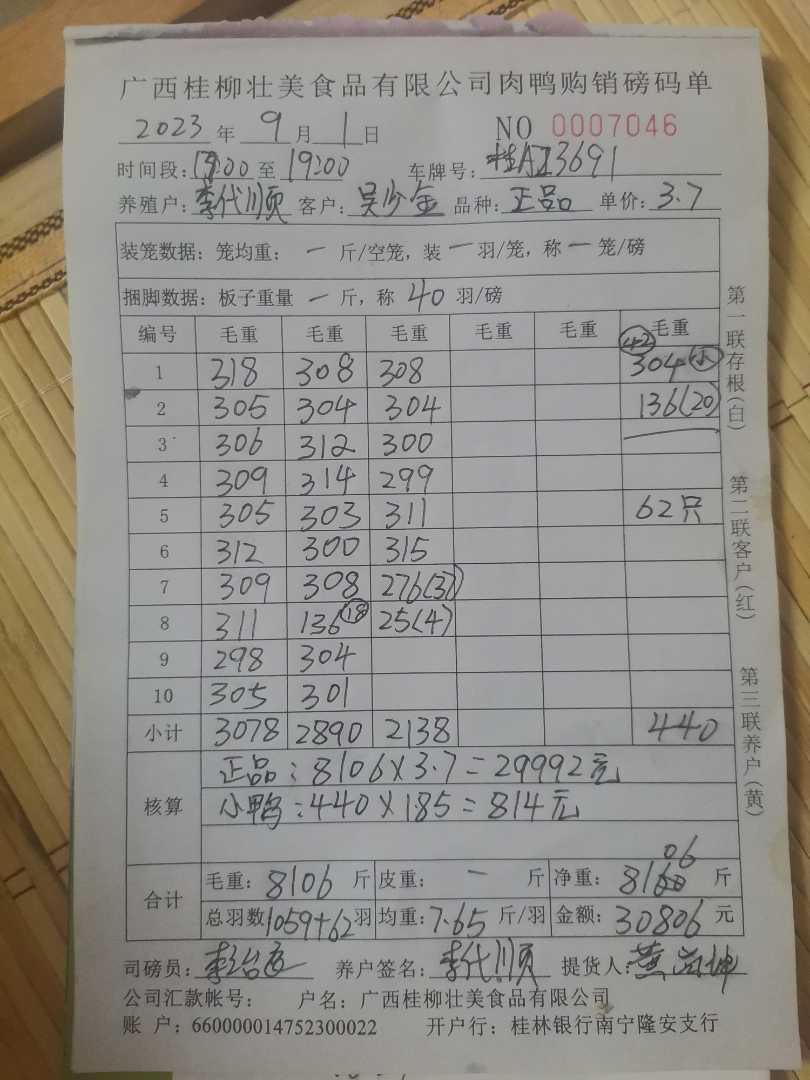 广西桂柳壮美食品有限公司肉鸭购销磅码单
2023 年 9 月 1 日 NO 0007046
时间段: :00 至 19:00 车牌号: 3691
养殖户: 李代顺 客户: 吴少金 品种: 正品 单价: 3.7
装笼数据: 笼均重: 一 斤/空笼, 装 一 羽/笼, 称 一 笼/磅
捆脚数据: 板子重量 一 斤, 称 40 羽/磅
编号 毛重 毛重 毛重 毛重 毛重 毛重
(42)
1 318 308 308 304(小)
2 305 304 304 136(20)
3 306 312 300
4 309 314 299
5 305 303 311 62只
6 312 300 315
7 309 308 276(37)
8 311 136(18) 25(4)
9 298 304
10 305 301
小计 3078 2890 2138 440
核算
正品: 8106×3.7=29992元
小鸭: 440×1.85=814元
合计
毛重: 8106 斤 皮重: 一 斤 净重: 8106 斤
总羽数 1059+62 羽 均重: 7.65 斤/羽 金额: 30806 元
司磅员: 养户签名: 李代顺 提货人:
公司汇款帐号: 户名: 广西桂柳壮美食品有限公司
账 户: 660000014752300022 开户行: 桂林银行南宁隆安支行
第一联存根(白)
第二联客户(红)
第三联养户(黄)